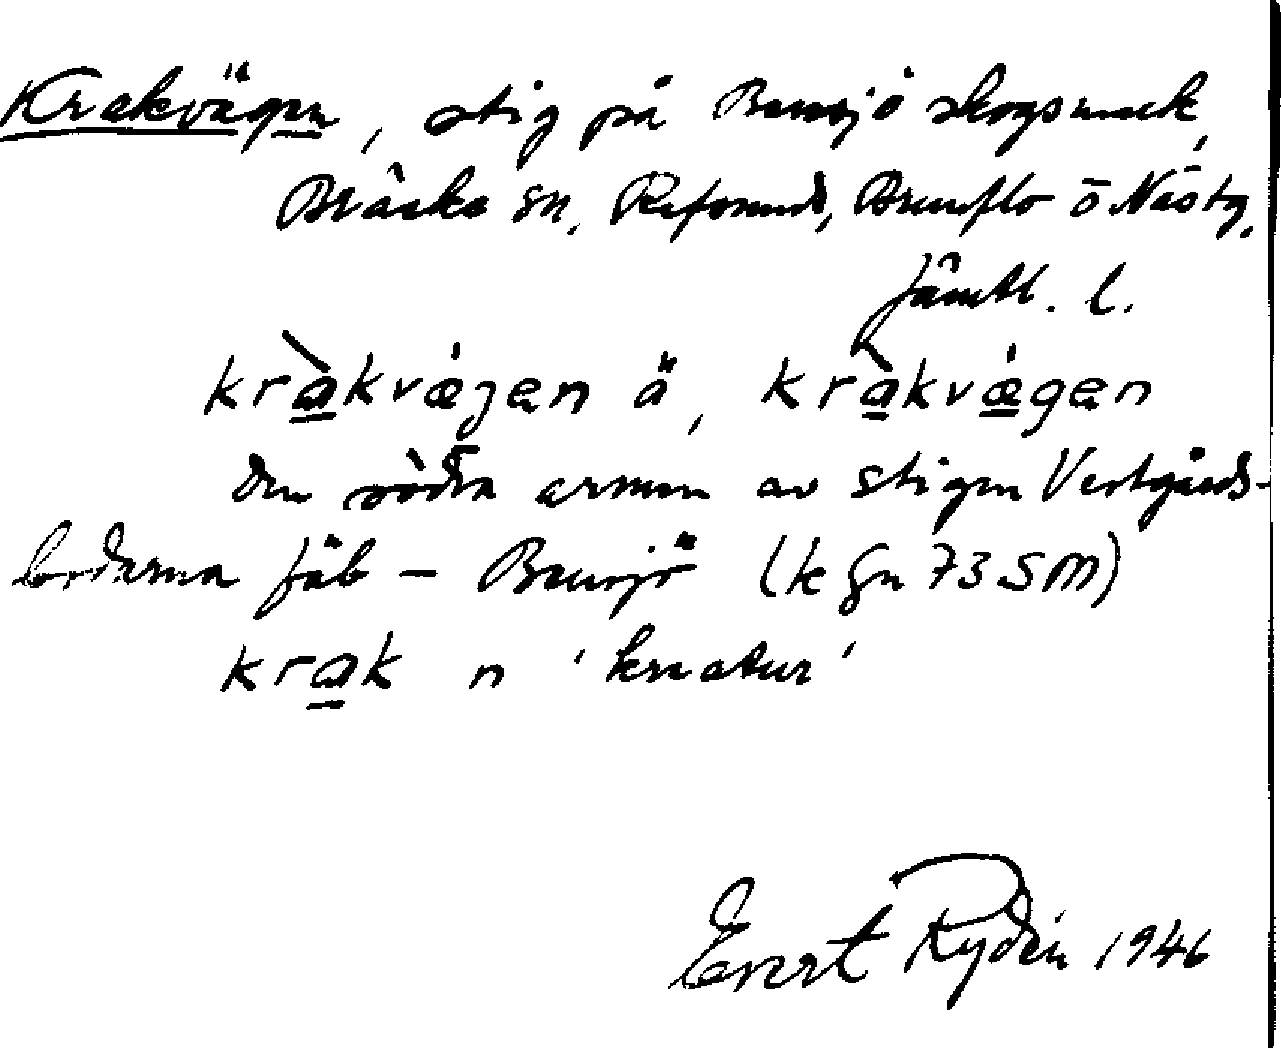 Krakvägen, stig på Bensjö skogsmark,
Bräcke sn, Refsunds, Brunflo o Näs tg,
Jämtl. l.
kràkvǽgen ä, kràkvǽgen
den södra armen av stigen Vestgårds-
bodarna fäb – Bensjö (k Gn 73 SM)
krak n 'kreatur'
Evert Rydén 1946